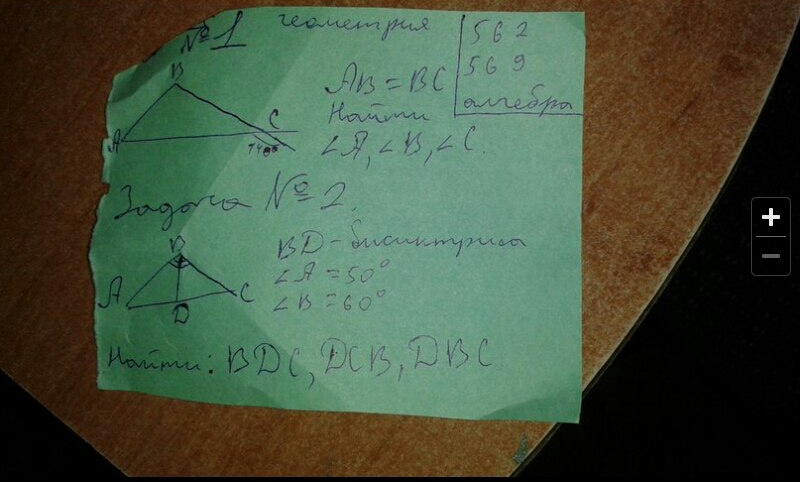 №1 геометрия
562
569
алгебра
B
A
C
AB = BC
Найти
∠A, ∠B, ∠C.
Задача №2.
B
A
C
D
BD - бисиктриса
∠A = 50°
∠B = 60°
Найти: BDC, DCB, DBC
+
−